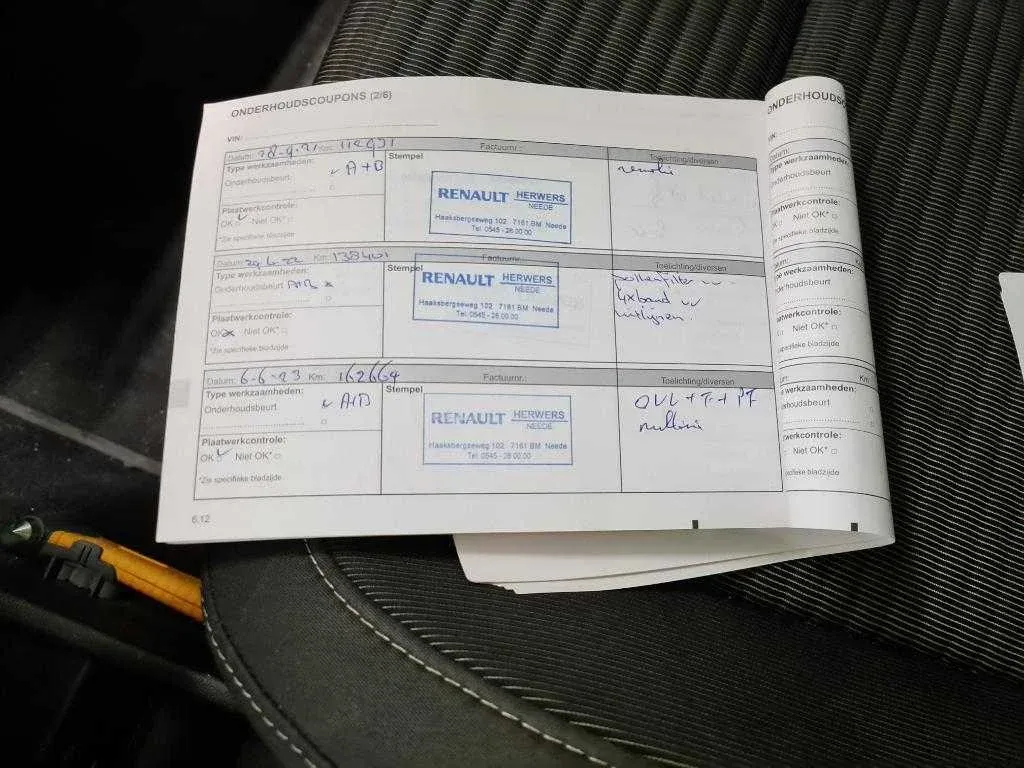 ONDERHOUDSCOUPONS (2/6)
VIN:
Datum: 28-9-21 Km:
Type werkzaamheden: A+B
Onderhoudsbeurt
Plaatwerkcontrole:
OK Niet OK*
*Zie specifieke bladzijde
Stempel
Factuurnr.:
RENAULT HERWERS
NEEDE
Haaksbergseweg 102 7161 BM Neede
Tel. 0545 - 28 00 00
Toelichting/diversen
Datum: 29-6-22 Km: 138401
Type werkzaamheden:
Onderhoudsbeurt A+B x
Plaatwerkcontrole:
OK Niet OK*
*Zie specifieke bladzijde
Stempel
RENAULT HERWERS
NEEDE
Haaksbergseweg 102 7161 BM Neede
Tel. 0545 - 28 00 00
Toelichting/diversen
pollenfilter
uitlijnen.
Datum: 6-6-23 Km: 162664
Type werkzaamheden:
Onderhoudsbeurt A+B
Plaatwerkcontrole:
OK Niet OK*
*Zie specifieke bladzijde
Stempel
Factuurnr.:
RENAULT HERWERS
NEEDE
Haaksbergseweg 102 7161 BM Neede
Tel. 0545 - 28 00 00
Toelichting/diversen
6.12
ONDERHOUDSC
VIN:
Datum:
ype werkzaamheden:
nderhoudsbeurt
laatwerkcontrole:
Niet OK*
Zie specifieke bladzijde
Km
e werkzaamheden:
nderhoudsbeurt
aatwerkcontrole:
Niet OK*
specifieke bladzijde
Km
e werkzaamheden:
houdsbeurt
werkcontrole:
Niet OK*
ifieke bladzijde